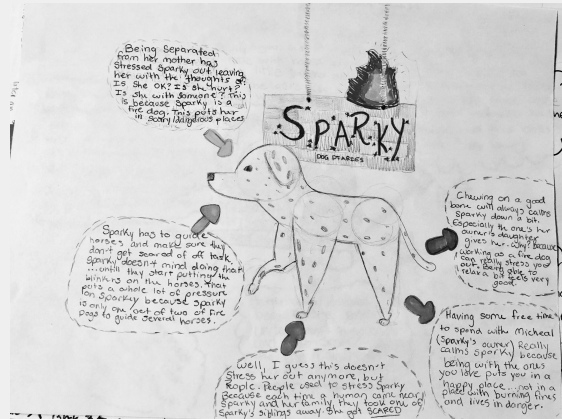 Being Separated
from her mother has
stressed Sparky out leaving
her with the thoughts of:
Is She OK? Is she hurt?
Is she with somone? This
is because Sparky is a
fire dog. This puts her
in scary/dangerous places
SPARKY
DOG DIARIES
Sparky has to guide
horses and make sure they
don't get scared of off task.
Sparky doesn't mind doing that
...until they start putting the
blinkers on the horses. That
puts a whole lot of pressure
on Sparky because Sparky
is only one out of two of fire
Dogs to guide several horses.
Chewing on a good
bone will always calms
Sparky down a bit.
Especially the one's her
owner's daughter
gives her. Why? Because
working as a fire dog
can really stress you
out. Being able to
relax a bit feels very
good.
Having some free time
to spend with Micheal
(Sparky's owner) Really
calms Sparky because
being with the ones
you love puts you in a
happy place...not in a
place with burning fires
and lives in danger.
Well, I guess this doesn't
Stress her out anymore, but
People. People used to stress Sparky
Because each time a human came near
Sparky and her family, they took one of
Sparky's siblings away. She got SCARED